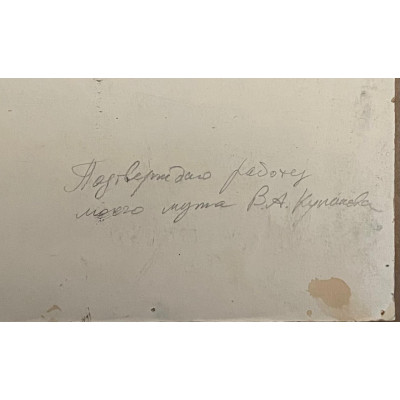 Подтверждаю работу
моего мужа В.А. Кулакова